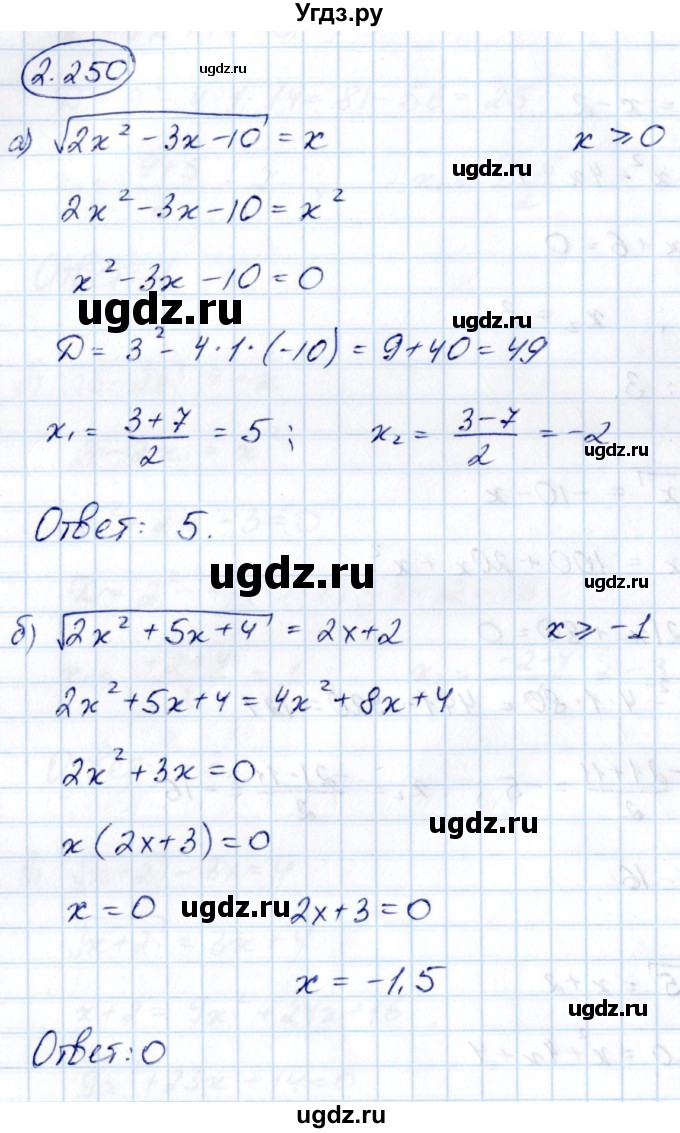 Угдз.ру
2.250
ugdz.ru
а) √(2x² - 3x - 10) = x        x ⩾ 0
ugdz.ru
2x² - 3x - 10 = x²
x² - 3x - 10 = 0
ugdz.ru
ugdz.ru
Д = 3² - 4·1·(-10) = 9 + 40 = 49
x₁ = (3+7)/2 = 5 ;    x₂ = (3-7)/2 = -2
ugdz.ru
Ответ: 5.
ugdz.ru
ugdz.ru
б) √(2x² + 5x + 4) = 2x + 2        x ⩾ -1
2x² + 5x + 4 = 4x² + 8x + 4
2x² + 3x = 0
ugdz.ru
x(2x+3) = 0
x = 0    ugdz.ru    2x + 3 = 0
x = -1,5
ugdz.ru
Ответ: 0
ugdz.ru
ugdz.ru